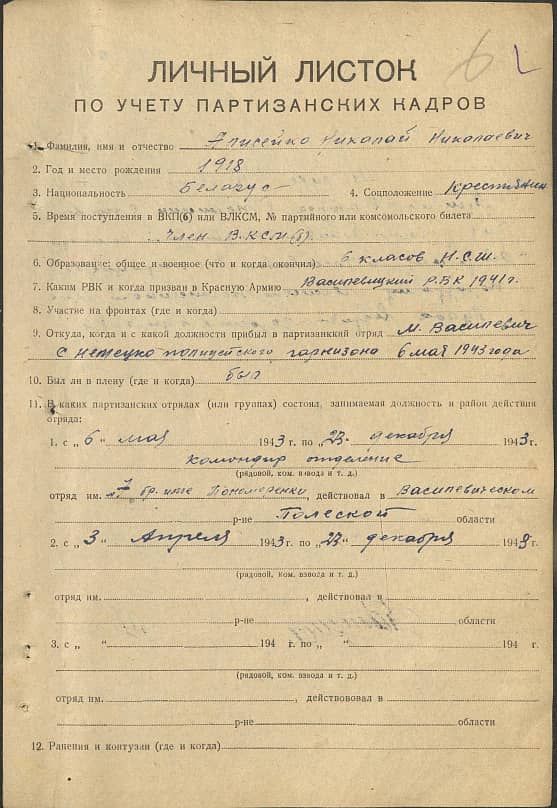 6
ЛИЧНЫЙ ЛИСТОК
ПО УЧЕТУ ПАРТИЗАНСКИХ КАДРОВ
1. Фамилия, имя и отчество Алисейко Николай Николаевич
2. Год и место рождения 1918
3. Национальность Беларус 4. Соцположение Крестьянин
5. Время поступления в ВКП(б) или ВЛКСМ, № партийного или комсомольского билета
член В.КСМ(б).
6. Образование: общее и военное (что и когда окончил) 6 класов Н.С.Ш.
7. Каким РВК и когда призван в Красную Армию Василевицкий Р.В.К 1941 г.
8. Участие на фронтах (где и когда)
9. Откуда, когда и с какой должности прибыл в партизанкий отряд М. Василевич
С немецко полицейского гарнизона 6 мая 1943 года
10. Был ли в плену (где и когда) был
11. В каких партизанских отрядах (или группах) состоял, занимаемая должность и район действия
отряда:
1. с „ 6 “ мая 1943 г. по „ 23 “ декабря 1943 г.
командир отделение
(рядовой, ком. взвода и т. д.)
отряд им. бр. име Пономаренки, действовал в Василевическом
р-не Полеской области
2. с „ 3 “ Апреля 1943 г. по „ 23 “ декабря 1943 г.
(рядовой, ком. взвода и т. д.)
отряд им. , действовал в
р-не области
3. с „ “ 194 г. по „ “ 194 г.
(рядовой, ком. взвода и т. д.)
отряд им. , действововал в
р-не области
12. Ранения и контузии (где и когда)